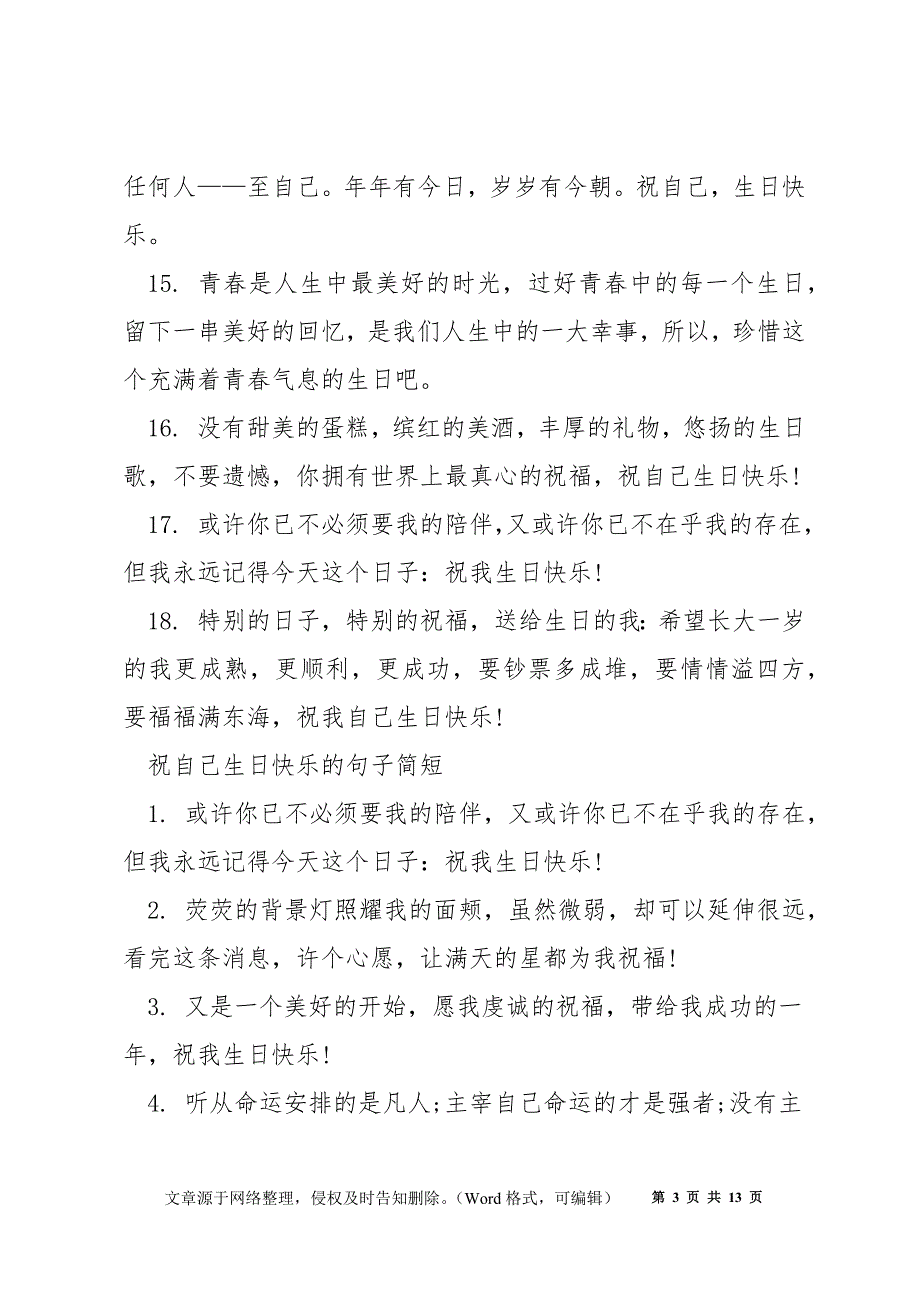 任何人——至自己。年年有今日，岁岁有今朝。祝自己，生日快
乐。
15. 青春是人生中最美好的时光，过好青春中的每一个生日，
留下一串美好的回忆，是我们人生中的一大幸事，所以，珍惜这
个充满着青春气息的生日吧。
16. 没有甜美的蛋糕，缤红的美酒，丰厚的礼物，悠扬的生日
歌，不要遗憾，你拥有世界上最真心的祝福，祝自己生日快乐!
17. 或许你已不必须要我的陪伴，又或许你已不在乎我的存在，
但我永远记得今天这个日子：祝我生日快乐!
18. 特别的日子，特别的祝福，送给生日的我：希望长大一岁
的我更成熟，更顺利，更成功，要钞票多成堆，要情情溢四方，
要福福满东海，祝我自己生日快乐!
祝自己生日快乐的句子简短
1. 或许你已不必须要我的陪伴，又或许你已不在乎我的存在，
但我永远记得今天这个日子：祝我生日快乐!
2. 荧荧的背景灯照耀我的面颊，虽然微弱，却可以延伸很远，
看完这条消息，许个心愿，让满天的星都为我祝福!
3. 又是一个美好的开始，愿我虔诚的祝福，带给我成功的一
年，祝我生日快乐!
4. 听从命运安排的是凡人;主宰自己命运的才是强者;没有主
文章源于网络整理，侵权及时告知删除。（Word 格式，可编辑） 第 3 页 共 13 页